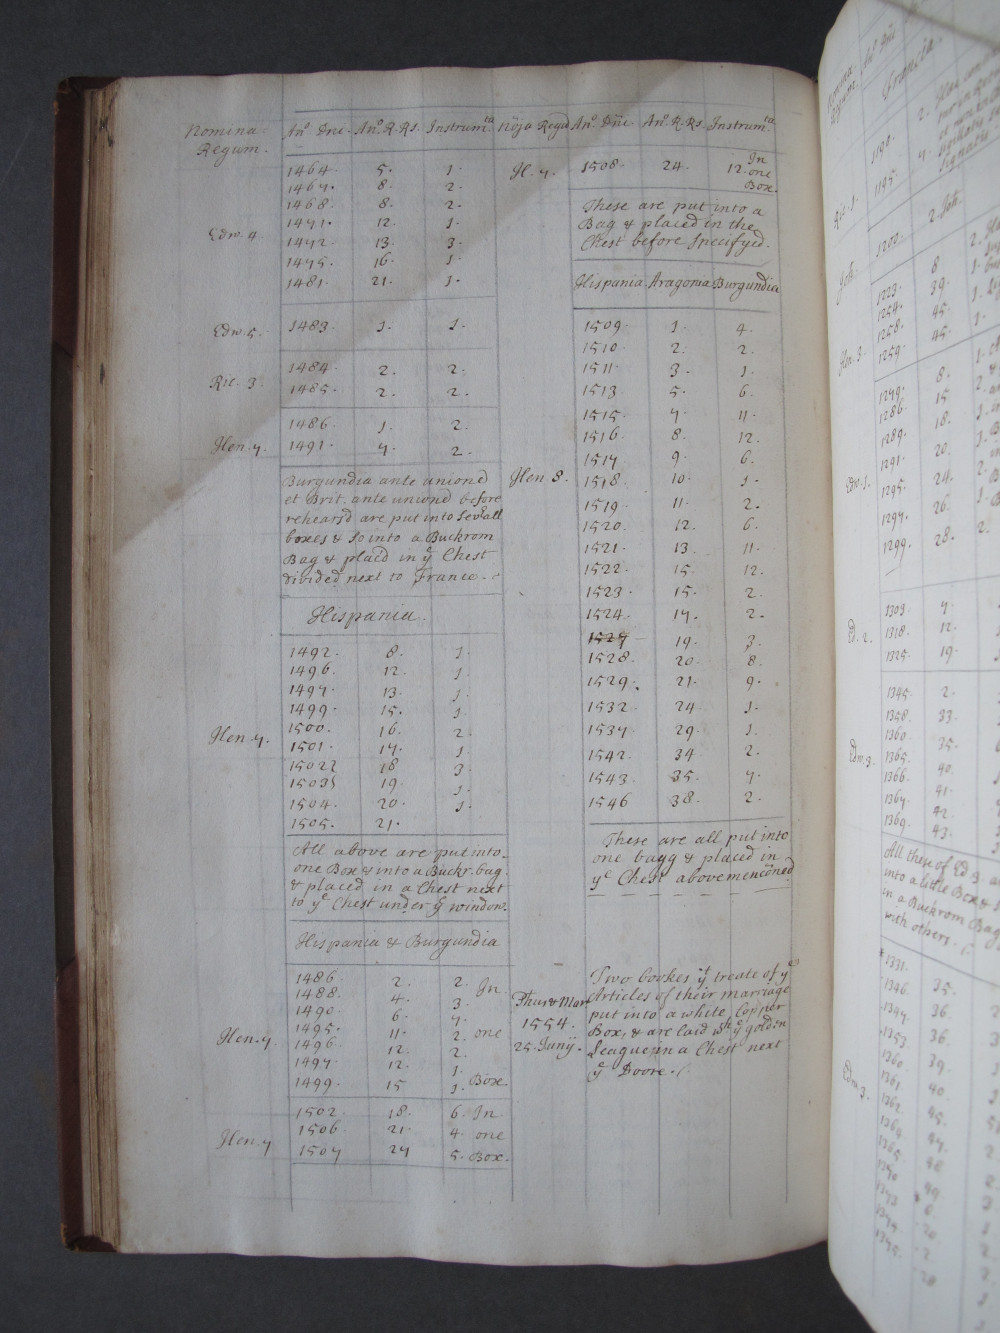 Nomina Regum. Ano Dni. Ano. R. Rs. Instrumta
Edw. 4
1464. 5. 1.
1467. 8. 2.
1468. 8. 2.
1471. 12. 1.
1472. 13. 3.
1475. 16. 1.
1481. 21. 1.
Edw. 5.
1483. 1. 1.
Ric. 3
1484. 2. 2.
1485. 2. 2.
Hen. 7.
1486. 1. 2.
1491. 7. 2.
Burgundia ante uniond
et Brit. ante uniond before
rehears'd are put into Severall
boxes & so into a Buckrom
Bag & placed in ye Chest
divided next to France.
Hispania.
Hen. 7.
1492. 8. 1.
1496. 12. 1.
1497. 13. 1.
1499. 15. 1.
1500. 16. 2.
1501. 17. 1.
1502 18 3.
1503 19 1.
1504. 20. 1.
1505. 21.
All above are put into
one Box & into a Buckr. bag
& placed in a Chest next
to ye Chest under ye window.
Hispania & Burgundia
Hen. 7.
1486. 2. 2. In
1488. 4. 3.
1490. 6. 7.
1495. 11. 2. one
1496. 12. 2.
1497. 12. 1.
1499. 15 1. Box
Hen. 7
1502. 18. 6. In
1506. 21. 4. one
1507 24 5. Box.
Noja Regu Ano Dni. Ano. R. Rs. Instrumta
H. 7. 1508. 24. 12. In one Box.
These are put into a
Bag & placed in the
Chest before Specifyed.
Hispania. Aragonia Burgundia
Hen 8.
1509. 1. 4.
1510. 2. 2.
1511. 3. 1.
1513. 5. 6.
1515. 7. 11.
1516. 8. 12.
1517. 9. 6.
1518. 10. 1.
1519. 11. 2.
1520. 12. 6.
1521. 13. 11.
1522. 15. 12.
1523. 15. 2.
1524. 17. 2.
1527 19. 3.
1528. 20. 8.
1529. 21. 9.
1532. 24 1.
1537. 29. 1.
1542. 34 2.
1543. 35. 7.
1546 38. 2.
These are all put into
one bagg & placed in
ye Chest abovemencond
1554.
25. Junij.
Two bookes yt treate of ye
Articles of their marriage
put into a white Copper
Box, & are laid wth ye golden
League in a Chest next
ye Doore.
Ric. 1.
1190.
1195.
Joh.
1200. 2. Joh.
Hen. 3.
1223. 8
1254. 39.
1258. 45.
1259. 45.
Edw. 1.
1279. 8.
1286. 15
1289. 18.
1291. 20.
1295. 24.
1297. 26.
1299. 28. 2.
Ed. 2.
1303. 7.
1318. 12.
1325. 19.
Edw. 3.
1345. 2.
1358. 33.
1360. 35.
1365.
1366. 40.
1367. 41.
1369. 42.
43.
All these of Ed 3
into a little Box &
in a Buckrom Bag
with others.
Edw. 3.
1331.
1346 35.
1347 36.
1353 36.
1360. 39.
1361 40.
1362 45.